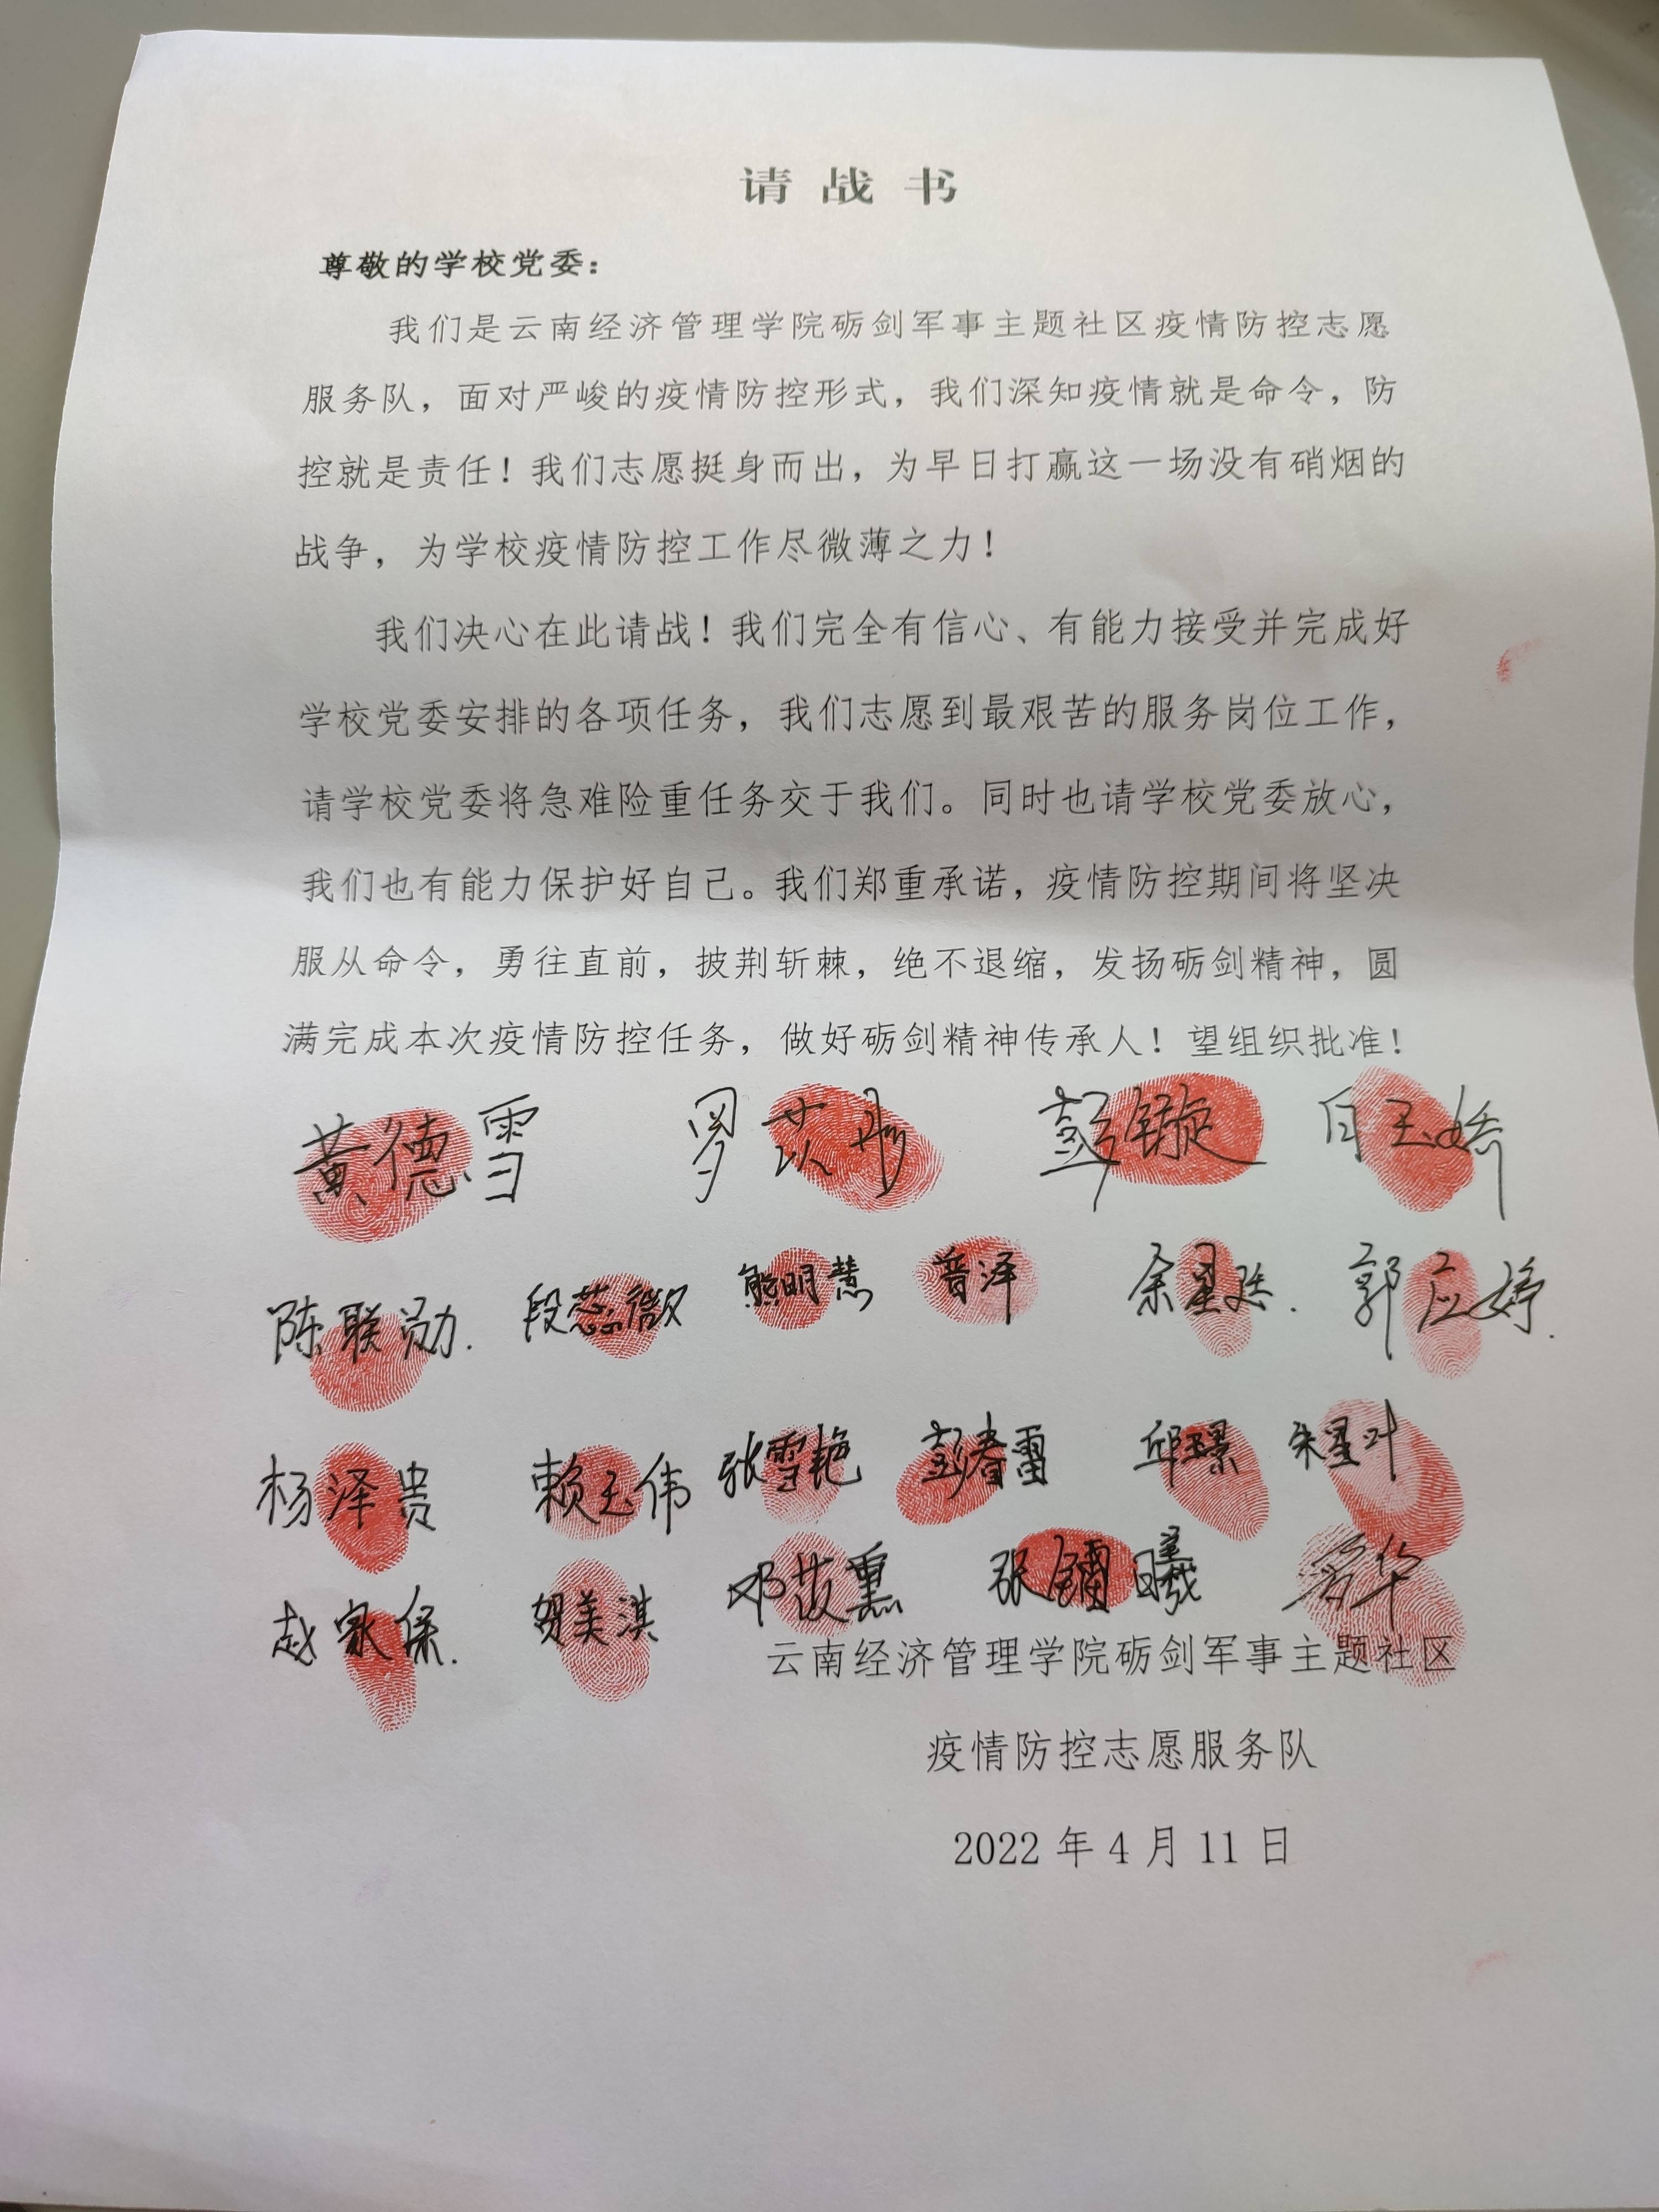 请战书
尊敬的学校党委：
我们是云南经济管理学院砺剑军事主题社区疫情防控志愿
服务队，面对严峻的疫情防控形式，我们深知疫情就是命令，防
控就是责任！我们志愿挺身而出，为早日打赢这一场没有硝烟的
战争，为学校疫情防控工作尽微薄之力！
我们决心在此请战！我们完全有信心、有能力接受并完成好
学校党委安排的各项任务，我们志愿到最艰苦的服务岗位工作，
请学校党委将急难险重任务交于我们。同时也请学校党委放心，
我们也有能力保护好自己。我们郑重承诺，疫情防控期间将坚决
服从命令，勇往直前，披荆斩棘，绝不退缩，发扬砺剑精神，圆
满完成本次疫情防控任务，做好砺剑精神传承人！望组织批准！
黄德雪 彭镟 白玉娇
陈联勋. 段蕊微 熊明慧 普泽 郭应婷.
杨泽贵 赖玉伟 张雪艳 彭春雷 邱璟 朱星叶
赵家保. 胡美淇 张镭曦
云南经济管理学院砺剑军事主题社区
疫情防控志愿服务队
2022年4月11日